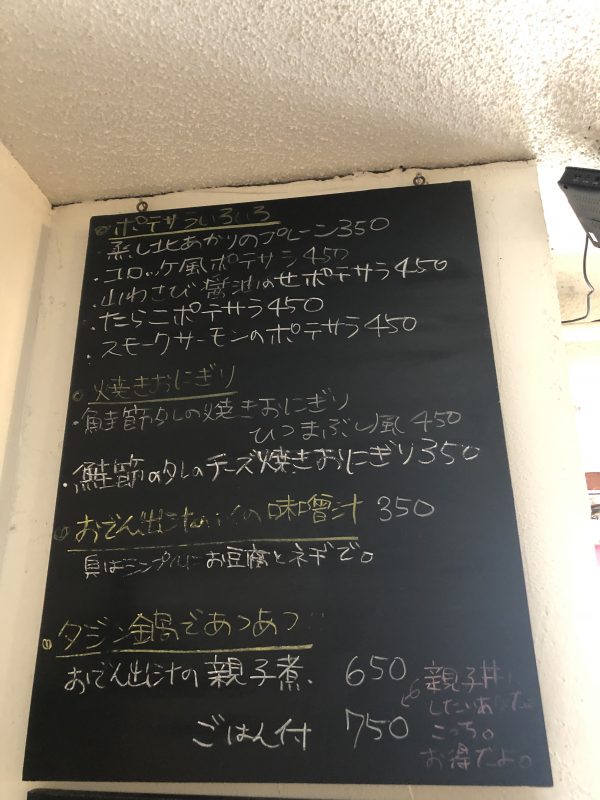 ポテサラいろいろ
蒸し北あかりのプレーン350
・コロッケ風ポテサラ450
・山わさび醤油のせポテサラ450
・たらこポテサラ450
・スモークサーモンのポテサラ450
焼きおにぎり
・鮭節タレの焼きおにぎり
ひつまぶし風 450
・鮭節のタレのチーズ焼きおにぎり350
おでん出汁の味噌汁 350
具はシンプルにお豆腐とネギで。
タジン鍋であつあつ
おでん出汁の親子煮、 650
ごはん付 750
親子丼
したい
こっち。
お得だよ。